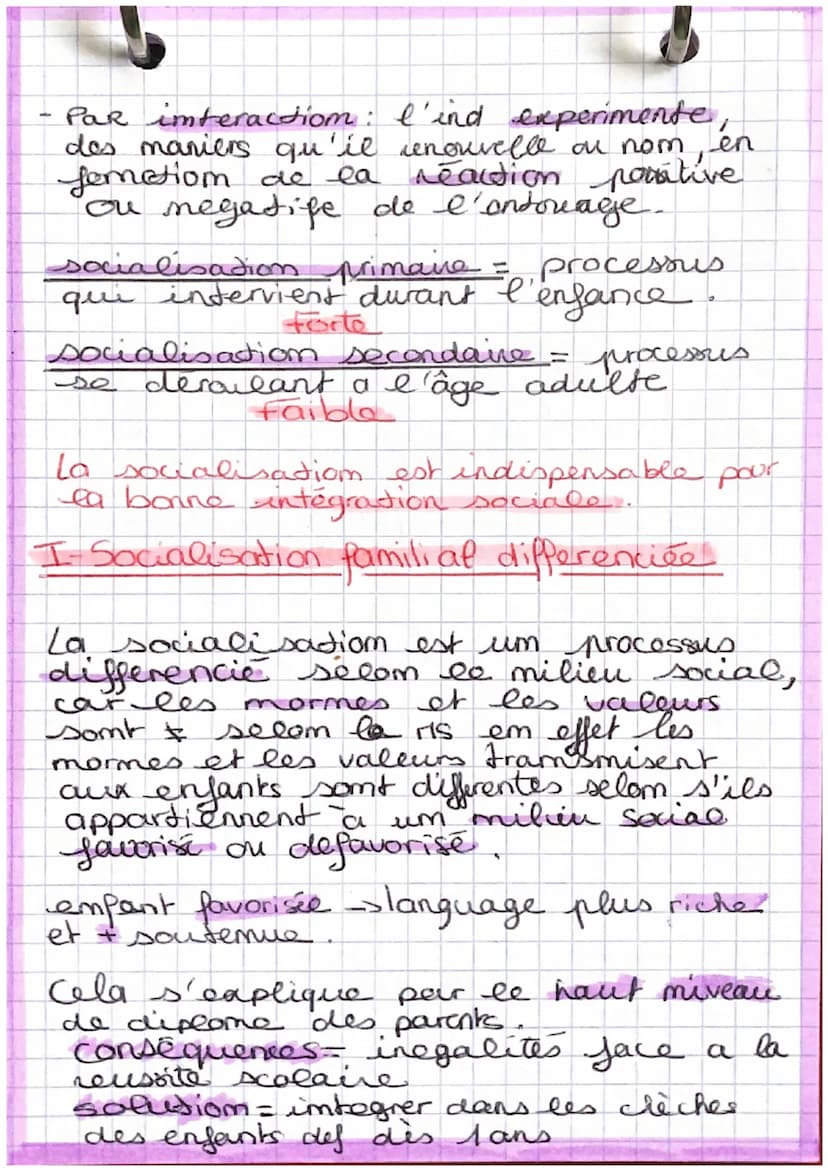 - Par interaction : l'ind experimente,
des maniers qu'il renouvelle ou nom, en
fonction de la réaction positive
ou negatife de l'entourage.
socialisation primaire = processus
qui intervient durant l'enfance.
Forte
socialisation secondaire = processus
se déroulant a l'âge adulte
Faible
La socialisation est indispensable pour
la bonne intégration sociale.
I- Socialisation familial differenciée
La socialisation est um processus
differencié selom le milieu social,
car les normes et les valeurs
sont ≠ selom le MS em effet les
normes et les valeurs transmisent
aux enfants sont différentes selom s'ils
appartiennent à um milieu social
favorisé ou defavorisé.
enfant favorisée → language plus riche
et + soutenue.
Cela s'explique par le haut niveau
de diplome des parents.
conséquences = inegalités face a la
reussite scolaire
solution = integrer dans les crèches
des enfants def dès 1 ans